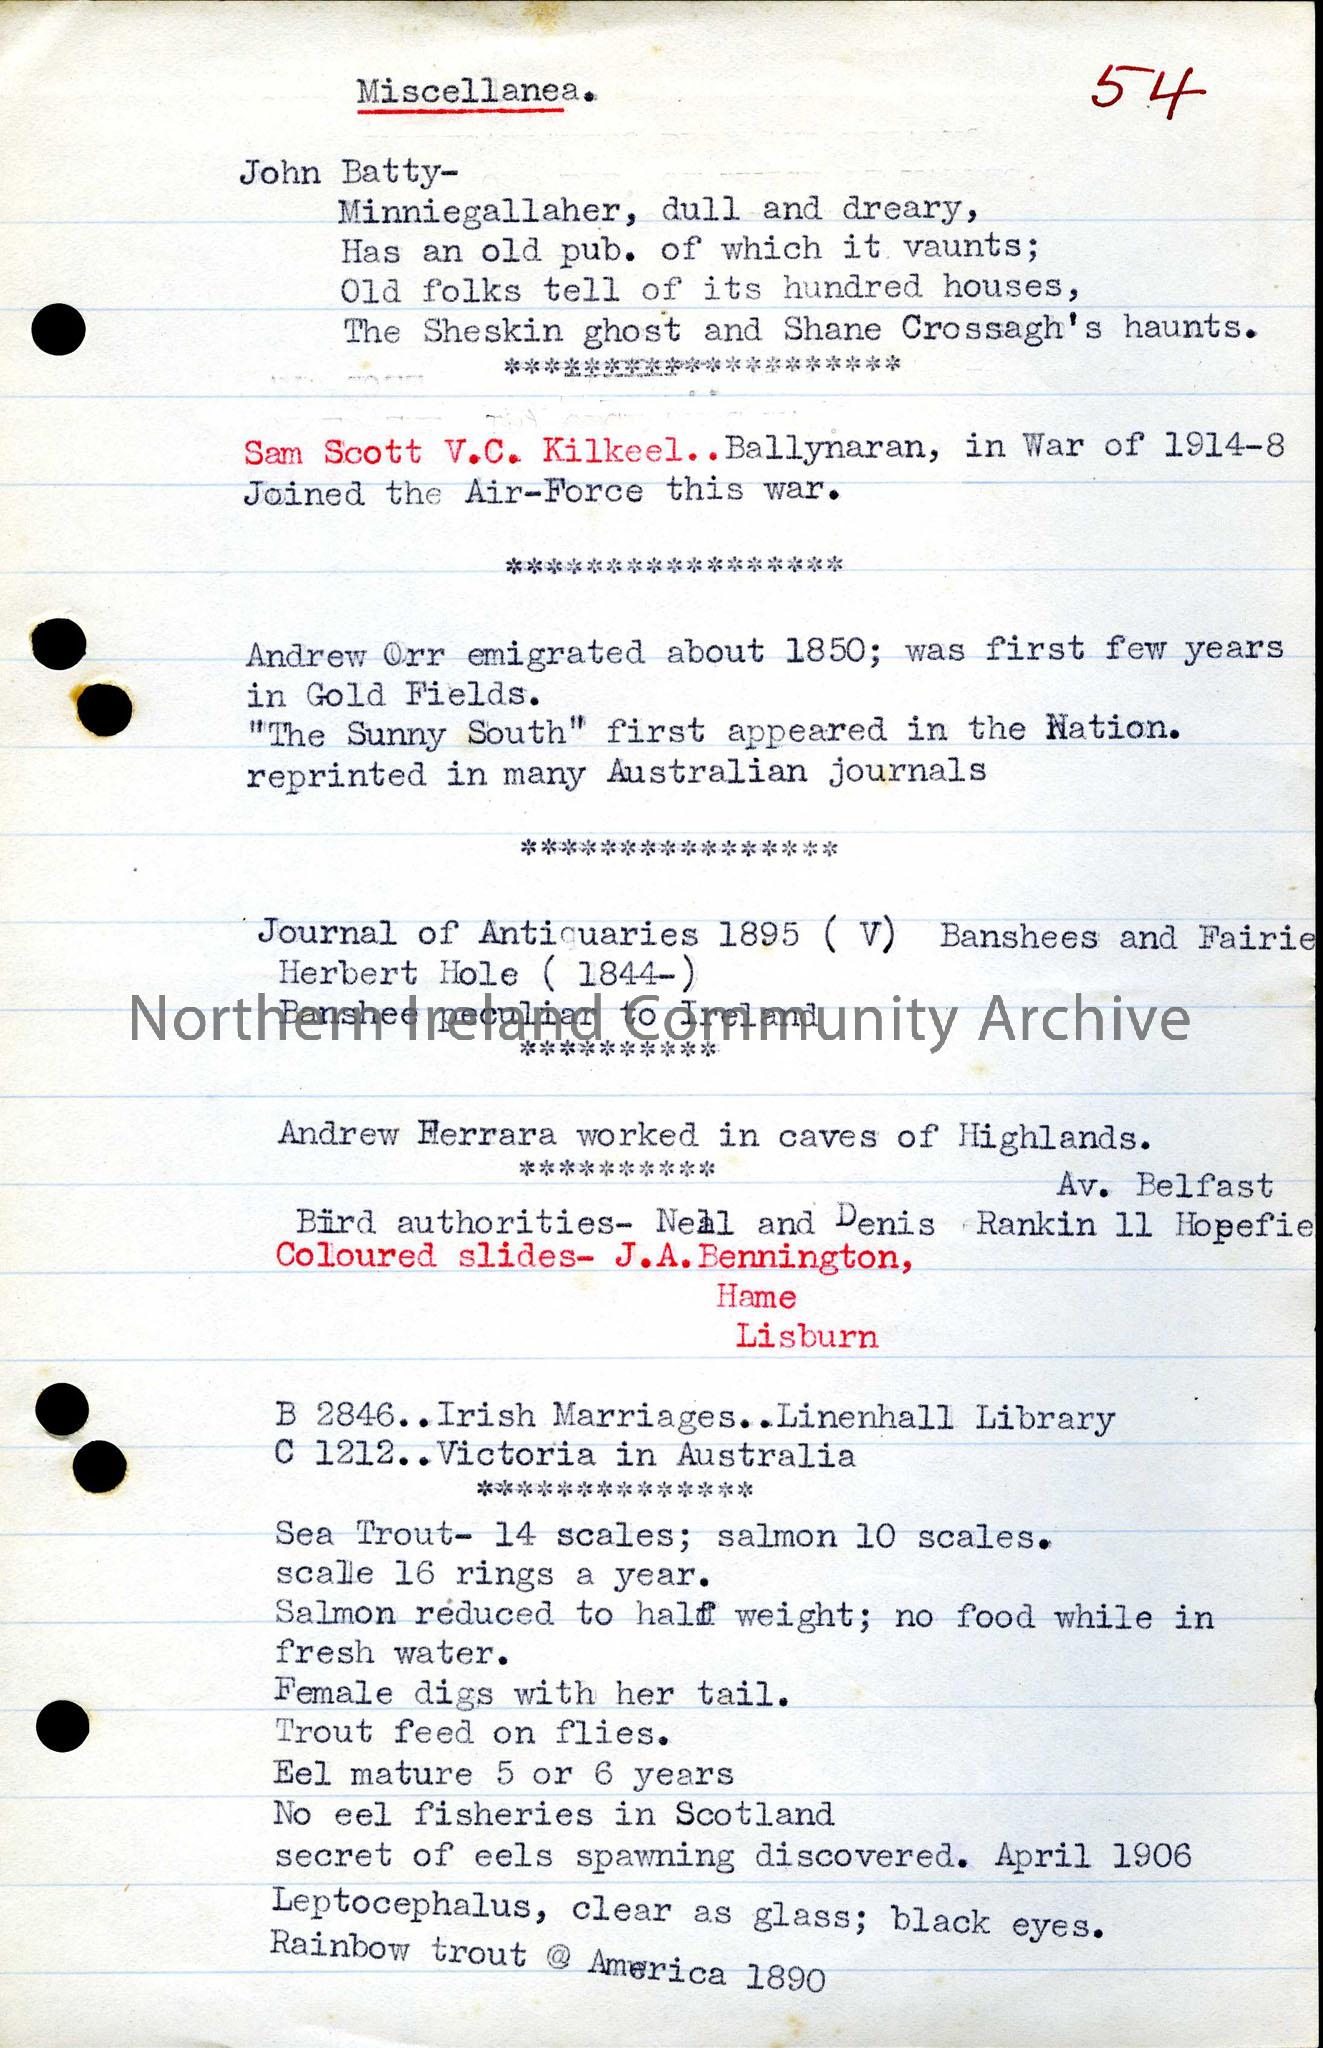 Miscellanea.
54
John Batty-
Minniegallaher, dull and dreary,
Has an old pub. of which it vaunts;
Old folks tell of its hundred houses,
The Sheskin ghost and Shane Crossagh's haunts.
********************
Sam Scott V.C. Kilkeel..Ballynaran, in War of 1914-8
Joined the Air-Force this war.
*****************
Andrew Orr emigrated about 1850; was first few years
in Gold Fields.
"The Sunny South" first appeared in the Nation.
reprinted in many Australian journals
****************
Journal of Antiquaries 1895 ( V) Banshees and Fairie
Herbert Hole ( 1844-)
Banshee peculiar to Ireland
Northern Ireland Community Archive
**********
Andrew Ferrara worked in caves of Highlands.
**********
Av. Belfast
Bird authorities- Nell and Denis Rankin 11 Hopefie
Coloured slides- J.A.Bennington,
Hame
Lisburn
B 2846..Irish Marriages..Linenhall Library
C 1212..Victoria in Australia
**************
Sea Trout- 14 scales; salmon 10 scales.
scale 16 rings a year.
Salmon reduced to half weight; no food while in
fresh water.
Female digs with her tail.
Trout feed on flies.
Eel mature 5 or 6 years
No eel fisheries in Scotland
secret of eels spawning discovered. April 1906
Leptocephalus, clear as glass; black eyes.
Rainbow trout @ America 1890